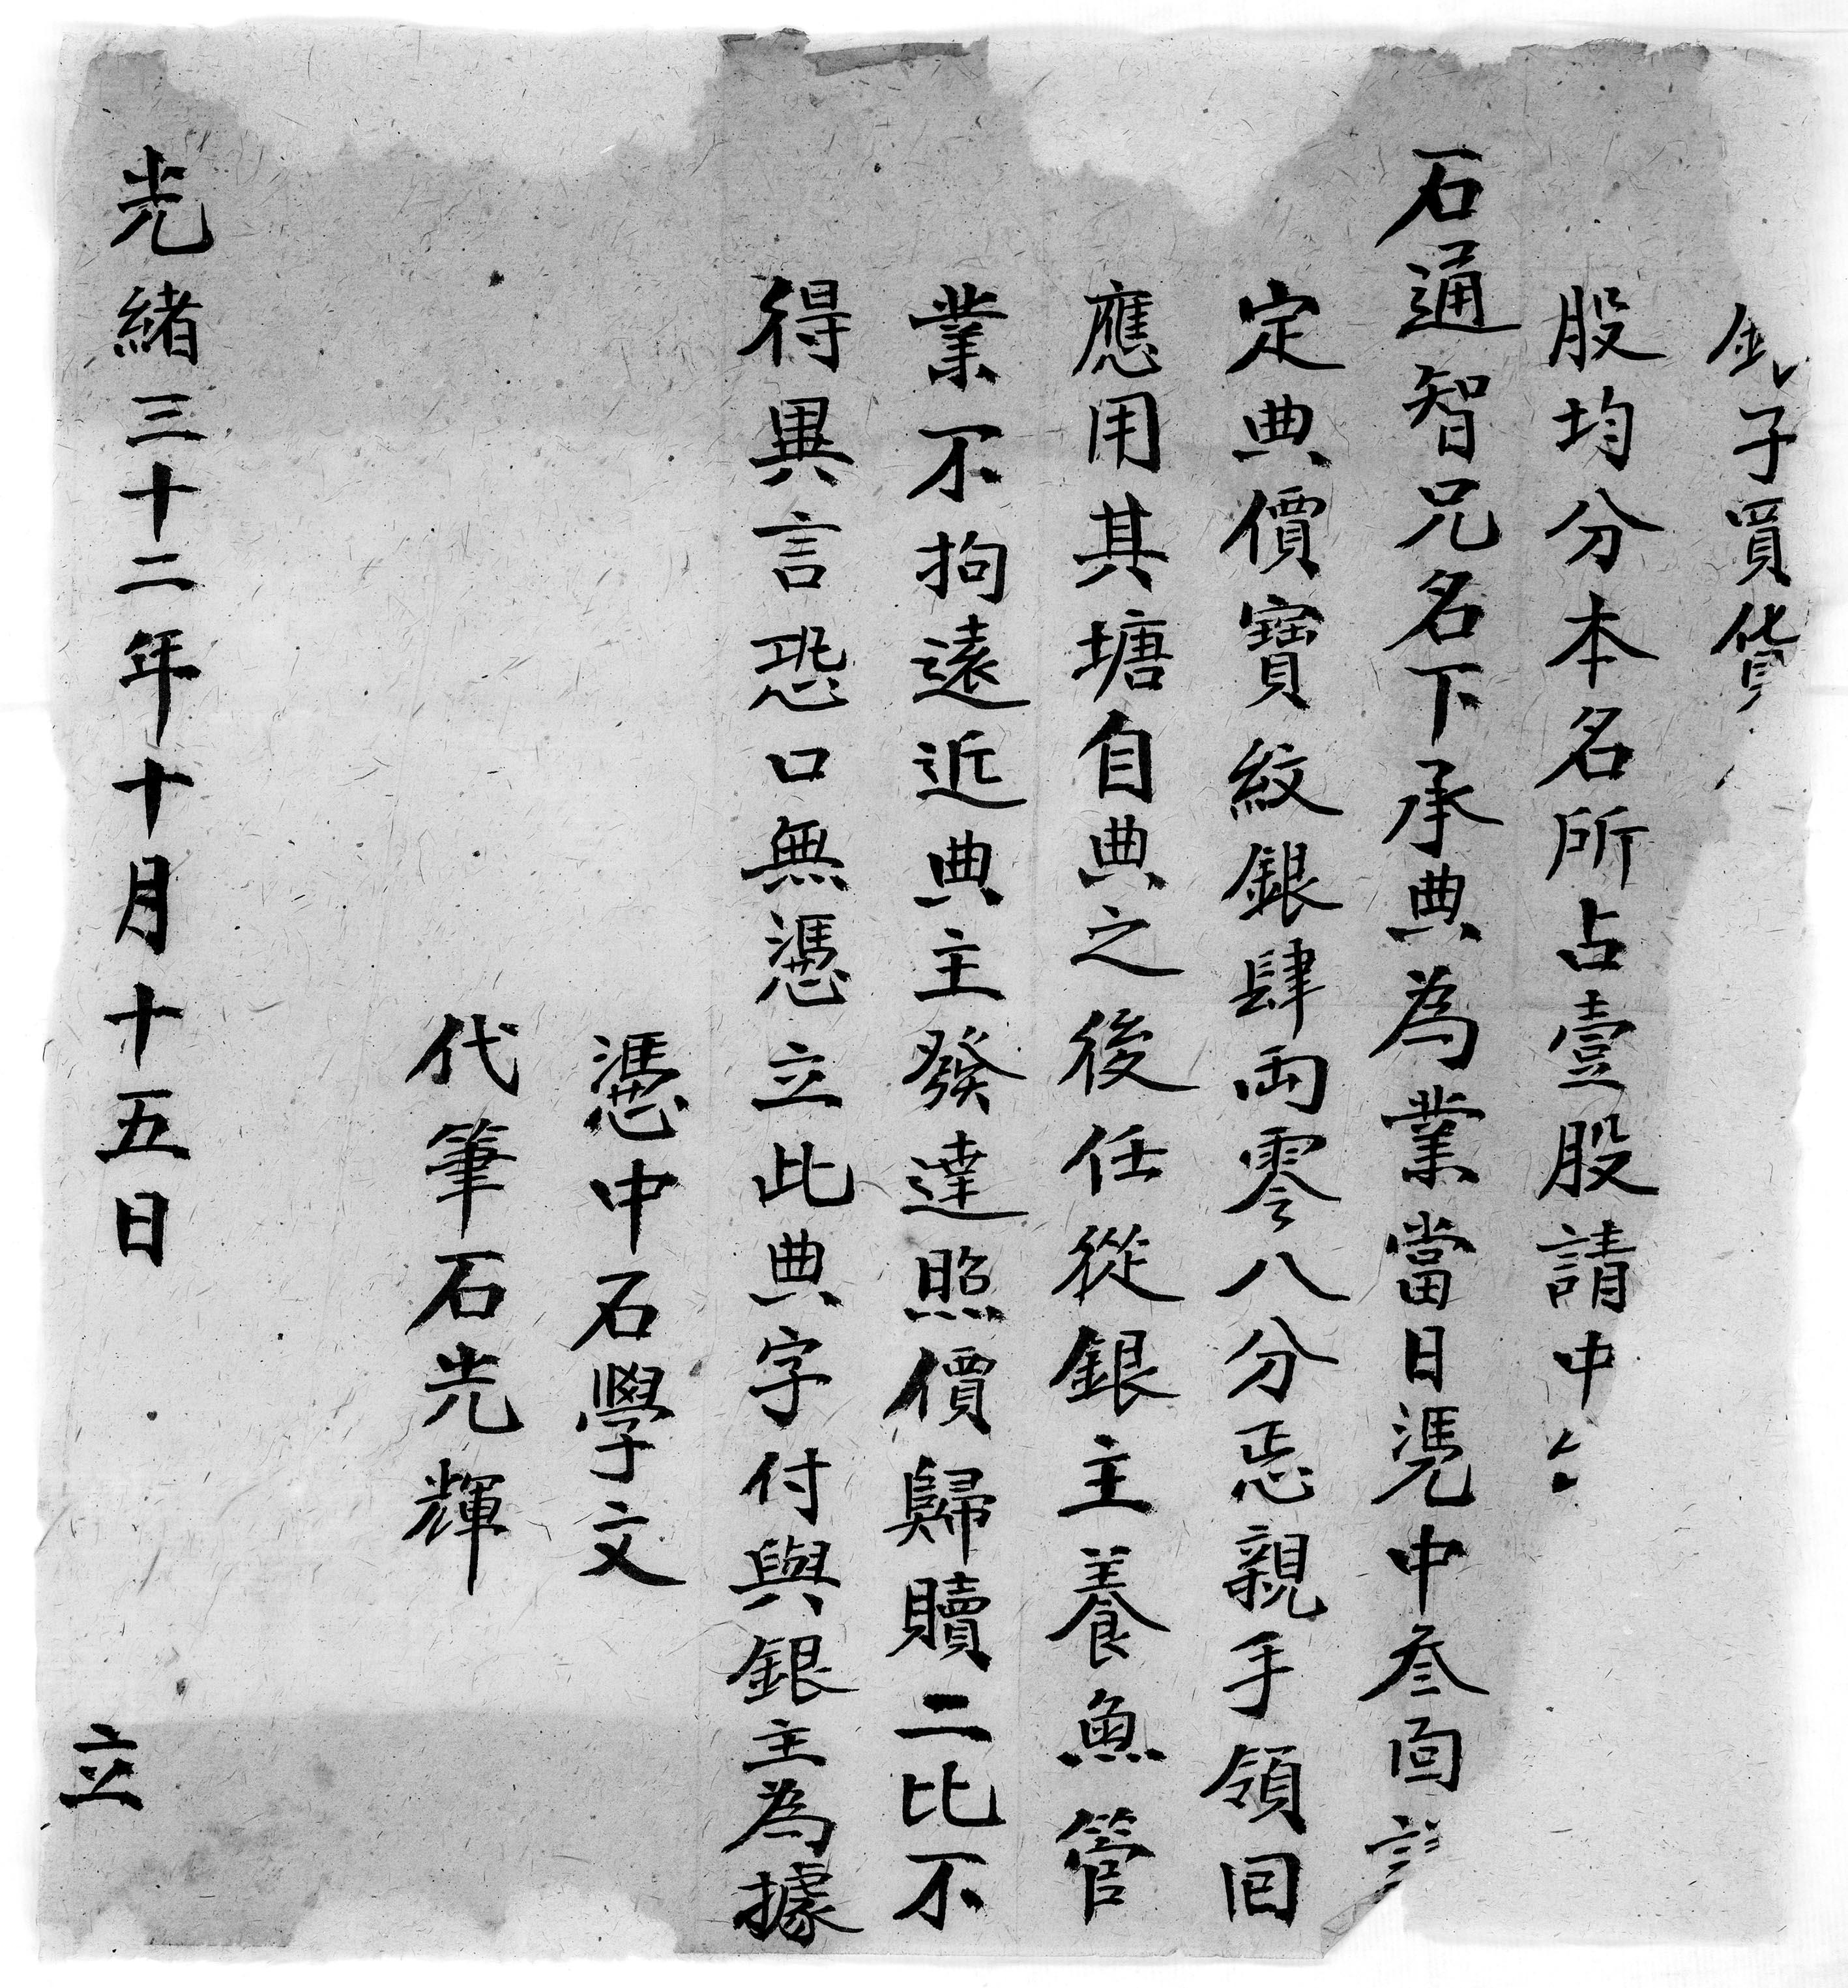 子買貨
股均分本名所占壹股請中
石通智兄名下承典為業當日凴中叁面
定典價寶紋銀肆両零八分㤙親手領囘
應用其塘自典之後任從銀主養魚管
業不拘遠近典主發達照價歸贖二比不
得異言恐口無憑立此典字付與銀主為據
憑中石學文
代筆石光輝
光緒三十二年十月十五日 立